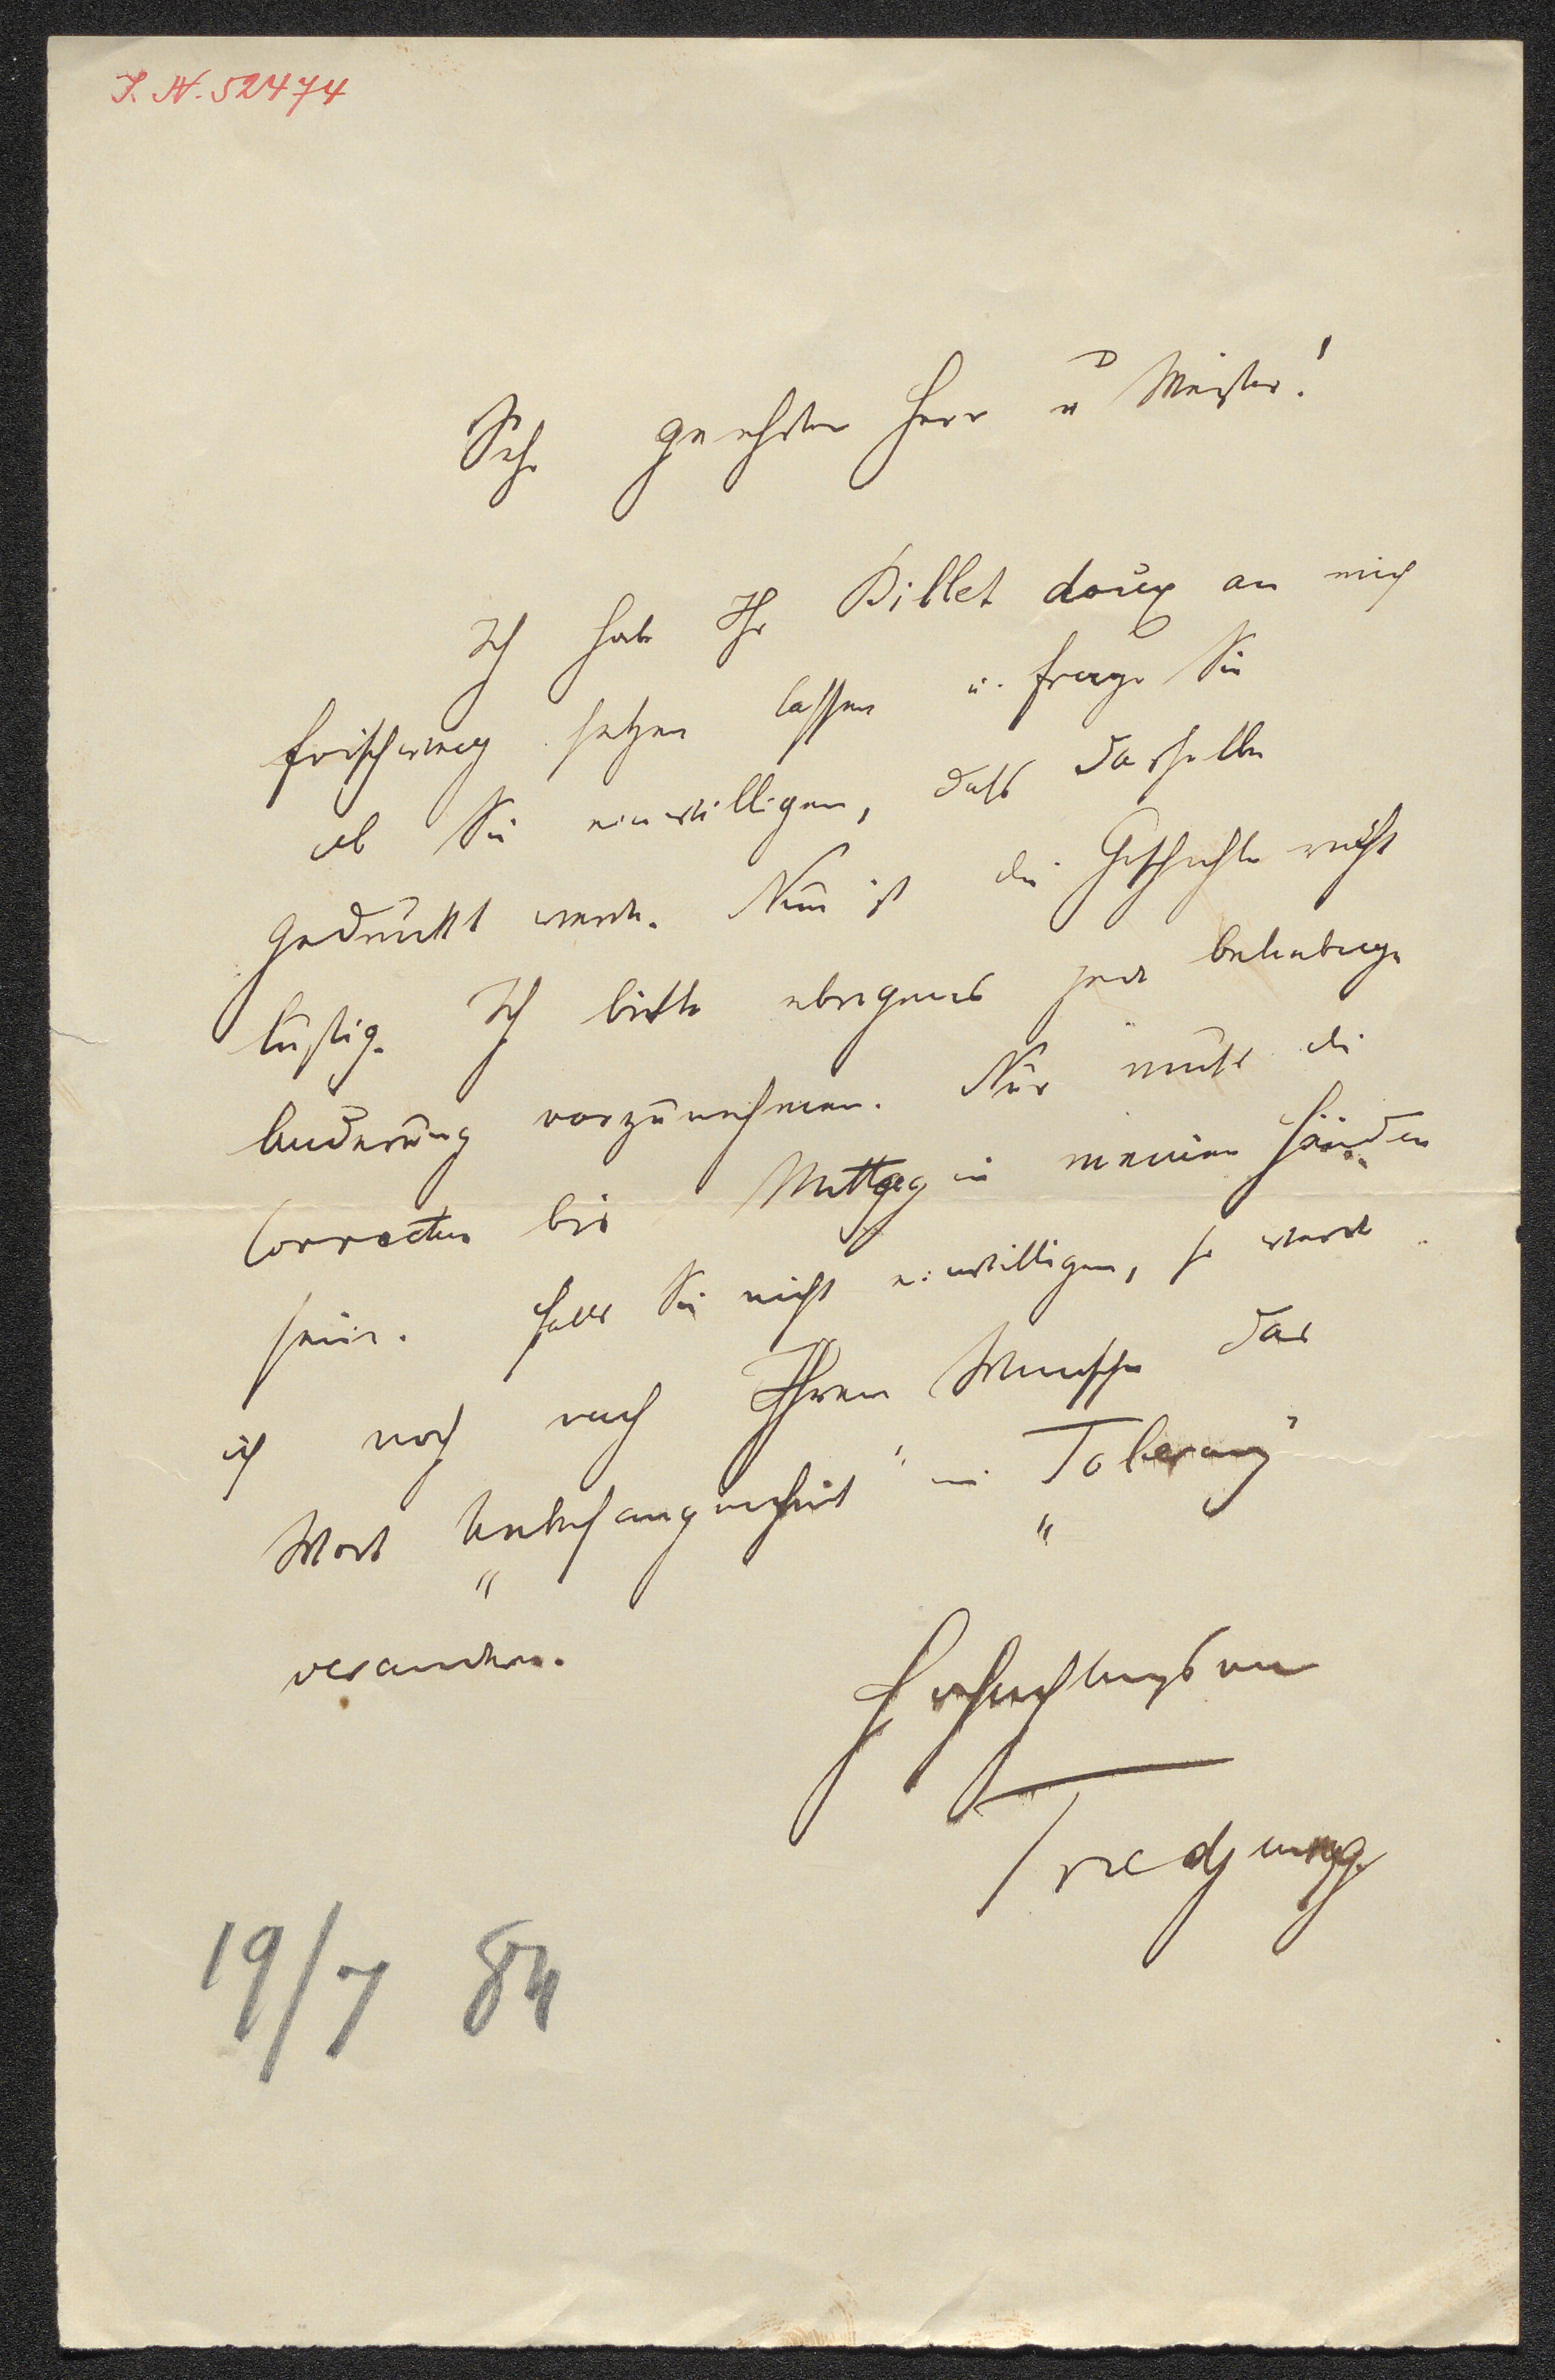 I. N. 52474
Sehr geehrter Herr u Meister!
Ich habe Ihr Billet doux an mich
frischweg setzen lassen u. frage Sie
ob Sie einwilligen, daß dasselbe
gedruckt werde. Nun ist die Geschichte recht
lustig. Ich bitte übrigens jede beliebige
Änderung vorzunehmen. Nur müßte die
Correctur bis Mittag in meinen Händen
sein. Falls Sie nicht einwilligen, so werde
ich noch nach Ihrem Wunsche das
Wort „Unbefangenheit" in „Toleranz"
verändern.
Hochachtungsvoll
Friedjung
19/7 84